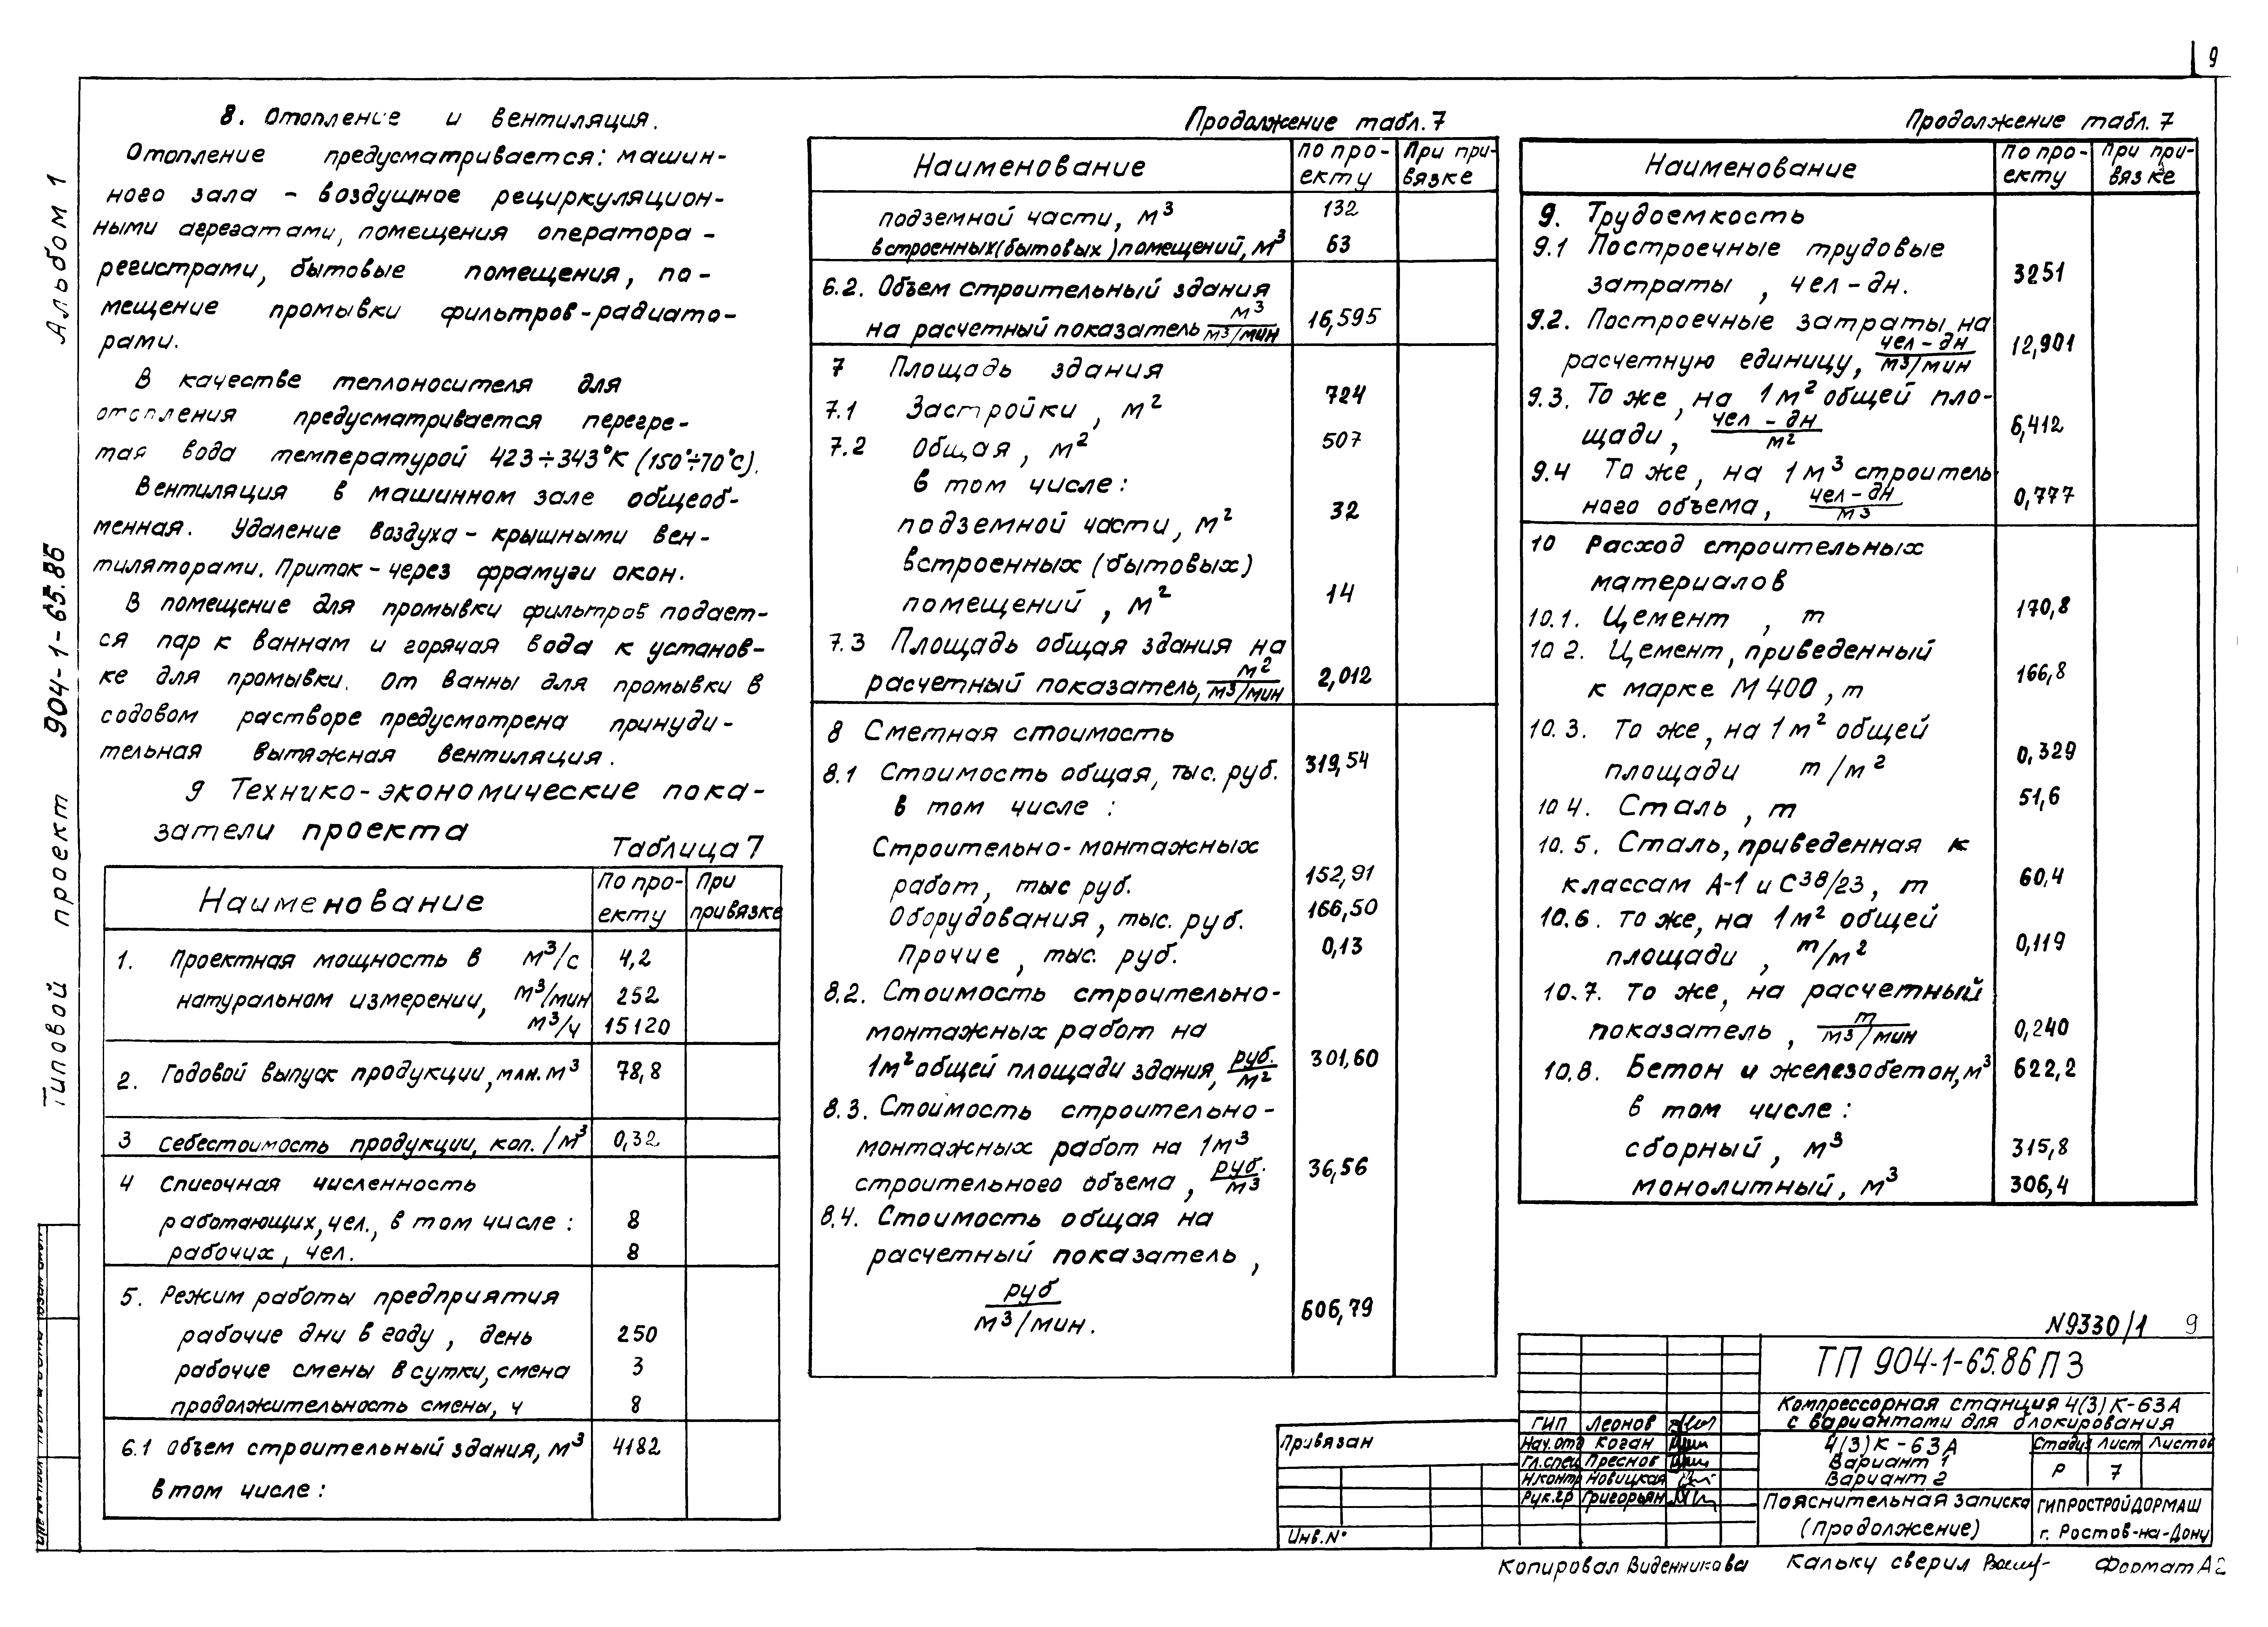 9
Альбом 1
Типовой проект 904-1-65.86
8. Отопление и вентиляция.
Отопление предусматривается: машин-
ного зала - воздушное рециркуляцион-
ными агрегатами, помещения оператора -
регистрами, бытовые помещения, по-
мещение промывки фильтров-радиато-
рами.
В качестве теплоносителя для
отопления предусматривается перегре-
тая вода температурой 423÷343°К (150°÷70°С).
Вентиляция в машинном зале общеоб-
менная. Удаление воздуха - крышными вен-
тиляторами. Приток - через фрамуги окон.
В помещение для промывки фильтров подает-
ся пар к ваннам и горячая вода к установ-
ке для промывки. От ванны для промывки в
содовом растворе предусмотрена принуди-
тельная вытяжная вентиляция.
9 Технико-экономические пока-
затели проекта
Таблица 7
Наименование По про-екту При привязке
1. Проектная мощность в м³/с 4,2
натуральном измерении, м³/мин 252
м³/ч 15120
2. Годовой выпуск продукции, млн. м³ 78,8
3 Себестоимость продукции, коп./м³ 0,32
4 Списочная численность
работающих, чел., в том числе: 8
рабочих, чел. 8
5. Режим работы предприятия
рабочие дни в году, день 250
рабочие смены в сутки, смена 3
продолжительность смены, ч 8
6.1 Объем строительный здания, м³ 4182
в том числе:
Продолжение табл. 7
Наименование По про-екту При при-вязке
подземной части, м³ 132
встроенных (бытовых) помещений, м³ 63
6.2. Объем строительный здания
на расчетный показатель м³/м³/мин 16,595
7 Площадь здания
7.1 Застройки, м² 724
7.2 Общая, м² 507
в том числе:
подземной части, м² 32
встроенных (бытовых)
помещений, м² 14
7.3 Площадь общая здания на
расчетный показатель, м²/м³/мин 2,012
8 Сметная стоимость
8.1 Стоимость общая, тыс. руб. 319,54
в том числе:
Строительно-монтажных
работ, тыс руб. 152,91
Оборудования, тыс. руб. 166,50
Прочие, тыс. руб. 0,13
8.2. Стоимость строительно-
монтажных работ на
1м² общей площади здания, руб./м² 301,60
8.3. Стоимость строительно-
монтажных работ на 1м³
строительного объема, руб./м³ 36,56
8.4. Стоимость общая на
расчетный показатель,
руб/м³/мин. 606,79
Продолжение табл. 7
Наименование По про-екту При при-вязке
9. Трудоемкость
9.1 Построечные трудовые
затраты, чел-дн. 3251
9.2. Построечные затраты на
расчетную единицу, чел-дн/м³/мин 12,901
9.3. То же, на 1м² общей пло-
щади, чел-дн/м² 6,412
9.4 То же, на 1м³ строитель-
ного объема, чел-дн/м³ 0,777
10 Расход строительных
материалов
10.1. Цемент, т 170,8
10 2. Цемент, приведенный
к марке М400, т 166,8
10.3. То же, на 1м² общей
площади т/м² 0,329
10 4. Сталь, т 51,6
10.5. Сталь, приведенная к
классам А-1 и С38/23, т 60,4
10.6. то же, на 1м² общей
площади, т/м² 0,119
10.7. то же, на расчетный
показатель, т/м³/мин 0,240
10.8. Бетон и железобетон, м³ 622,2
в том числе:
сборный, м³ 315,8
монолитный, м³ 306,4
N9330/1 9
ТП 904-1-65.86 ПЗ
Компрессорная станция 4(3)К-63А
с вариантами для блокирования
ГИП Леонов
Нач.отд Коган
Гл.спец Преснов
Н.контр Новицкая
Рук.гр Григорьян
4(3)К-63А
Вариант 1
Вариант 2
Стадия Лист Листов
Р 7
Пояснительная записка
(продолжение)
ГИПРОСТРОЙДОРМАШ
г. Ростов-на-Дону
Привязан
Инв.N°
Копировал Виденникова Кальку сверил Формат А2